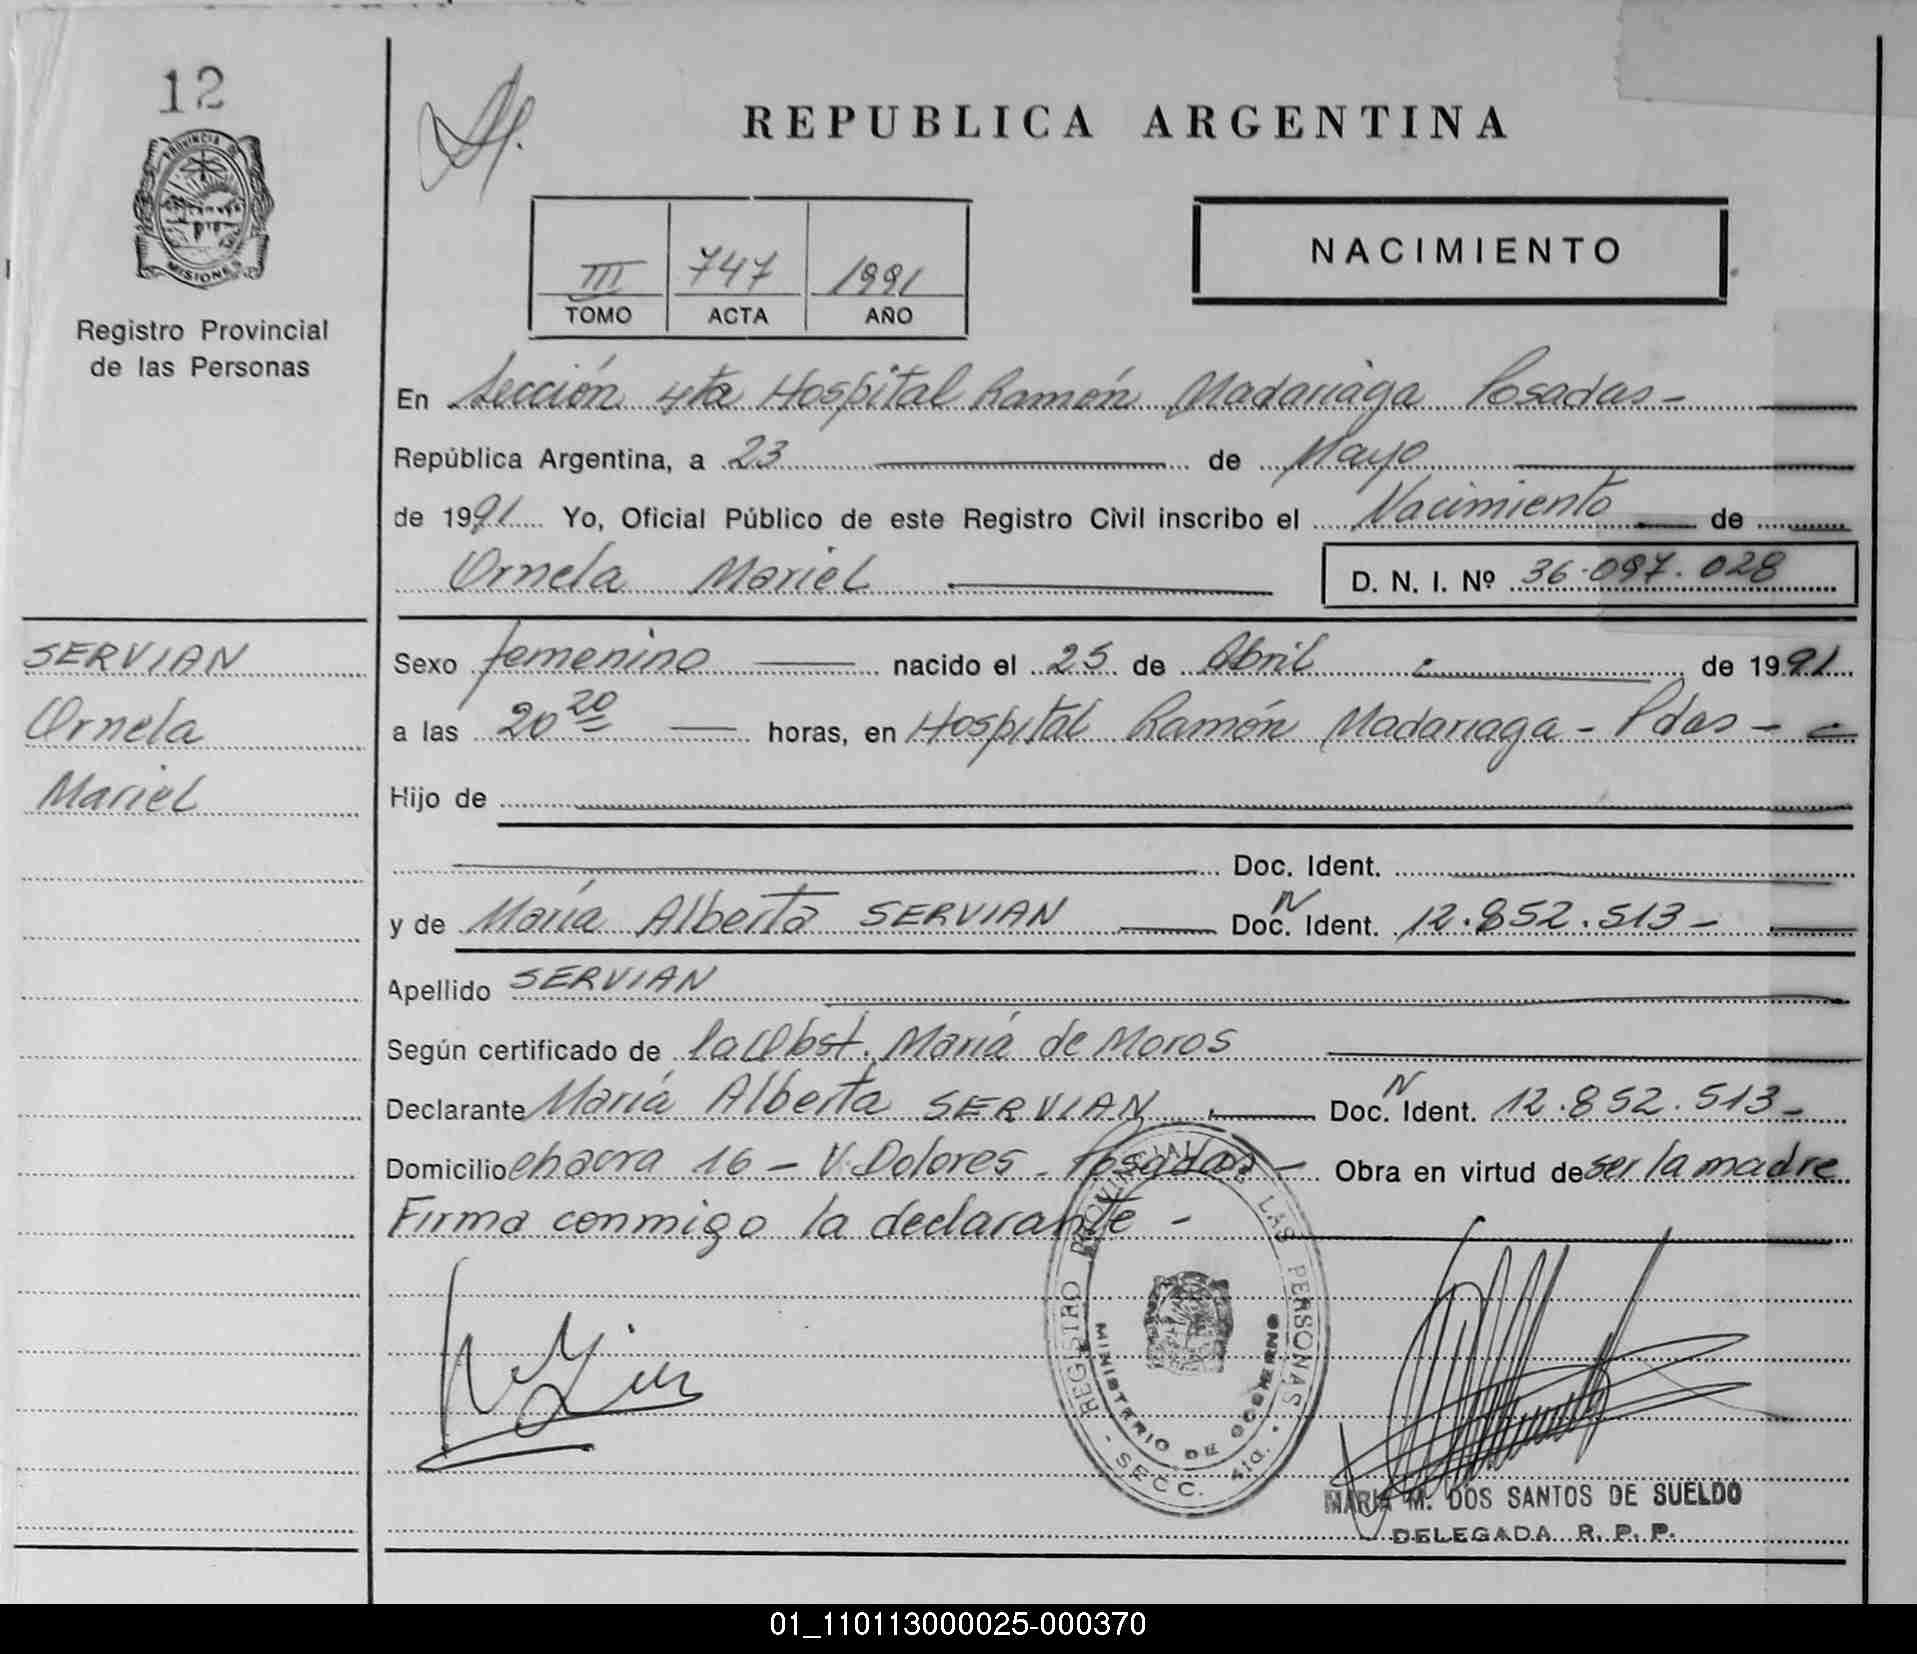 12
PROVINCIA DE
MISIONES
Registro Provincial
de las Personas
REPUBLICA ARGENTINA
III 747 1991
TOMO ACTA AÑO
NACIMIENTO
En Sección 4ta Hospital Ramón Madariaga Posadas-
República Argentina, a 23 de Mayo
de 1991 Yo, Oficial Público de este Registro Civil inscribo el Nacimiento de
Ornela Mariel D. N. I. Nº 36.097.028
SERVIAN
Ornela
Mariel
Sexo femenino nacido el 25 de Abril de 1991
a las 20 20 horas, en Hospital Ramón Madariaga - Pdas -
Hijo de
Doc. Ident.
y de María Alberta SERVIAN Doc. N Ident. 12.852.513-
Apellido SERVIAN
Según certificado de la Obst. María de Moros
Declarante María Alberta SERVIAN Doc. N Ident. 12.852.513-
Domicilio chacra 16 - V. Dolores - Posadas - Obra en virtud de ser la madre
Firma conmigo la declarante -
REGISTRO PROVINCIAL DE LAS PERSONAS
MINISTERIO DE GOBIERNO
- SECC. 4ta. -
MARIA M. DOS SANTOS DE SUELDO
DELEGADA R. P. P.
01_110113000025-000370